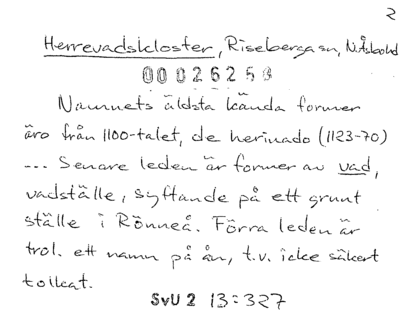 2
Herrevadskloster, Riseberga sn, N. Åsbo hd
00026259
Namnets äldsta kända former
äro från 1100-talet, de herivado (1123-70)
--- Senare leden är former av vad,
vadställe, syftande på ett grunt
ställe i Rönneå. Förra leden är
trol. ett namn på ån, t.v. icke säkert
tolkat.
SvU 2 13:327